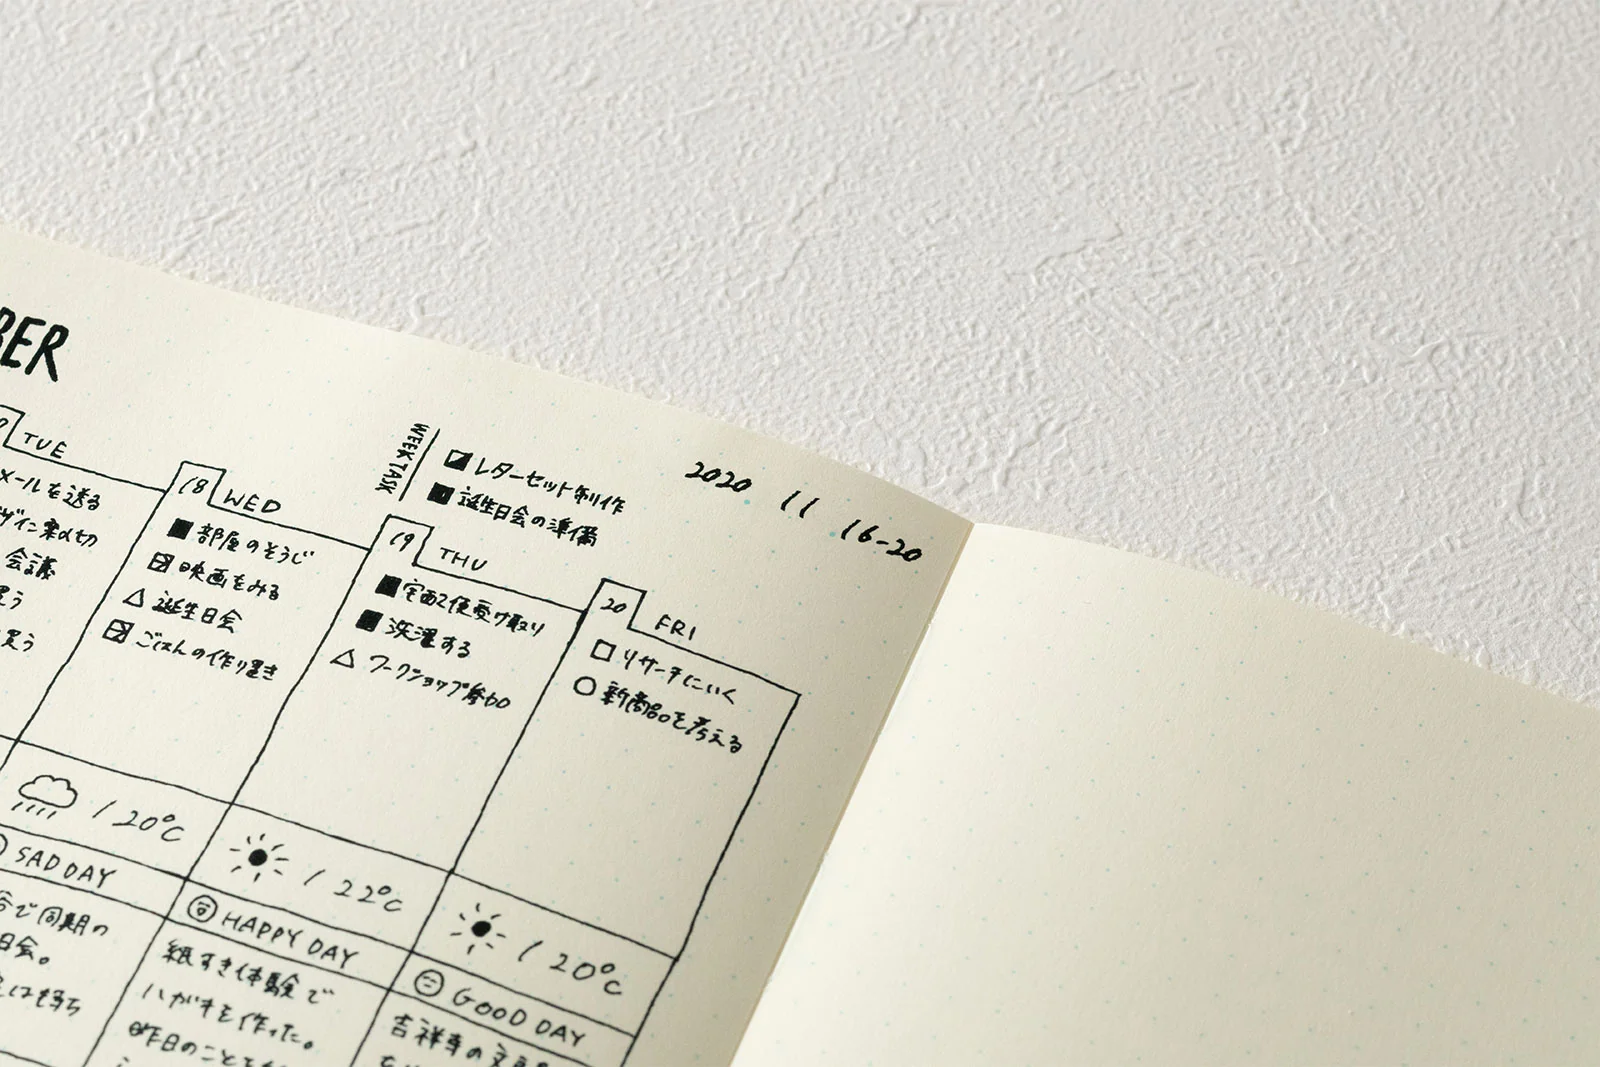 BER
WEEK TASK
レターセット制作
誕生日会の準備
2020 11 16-20
TUE
メールを送る
会議
買う
18 WED
部屋のそうじ
映画をみる
誕生日会
ごはんの作り置き
19 THU
宅配便受け取り
洗濯する
ワークショップ参加
20 FRI
リサーチにいく
新商品を考える
/ 20°C
/ 22°C
/ 20°C
SAD DAY
で同期の
日会。
HAPPY DAY
紙すき体験で
ハガキを作った。
昨日のことを
GOOD DAY
吉祥寺の文具